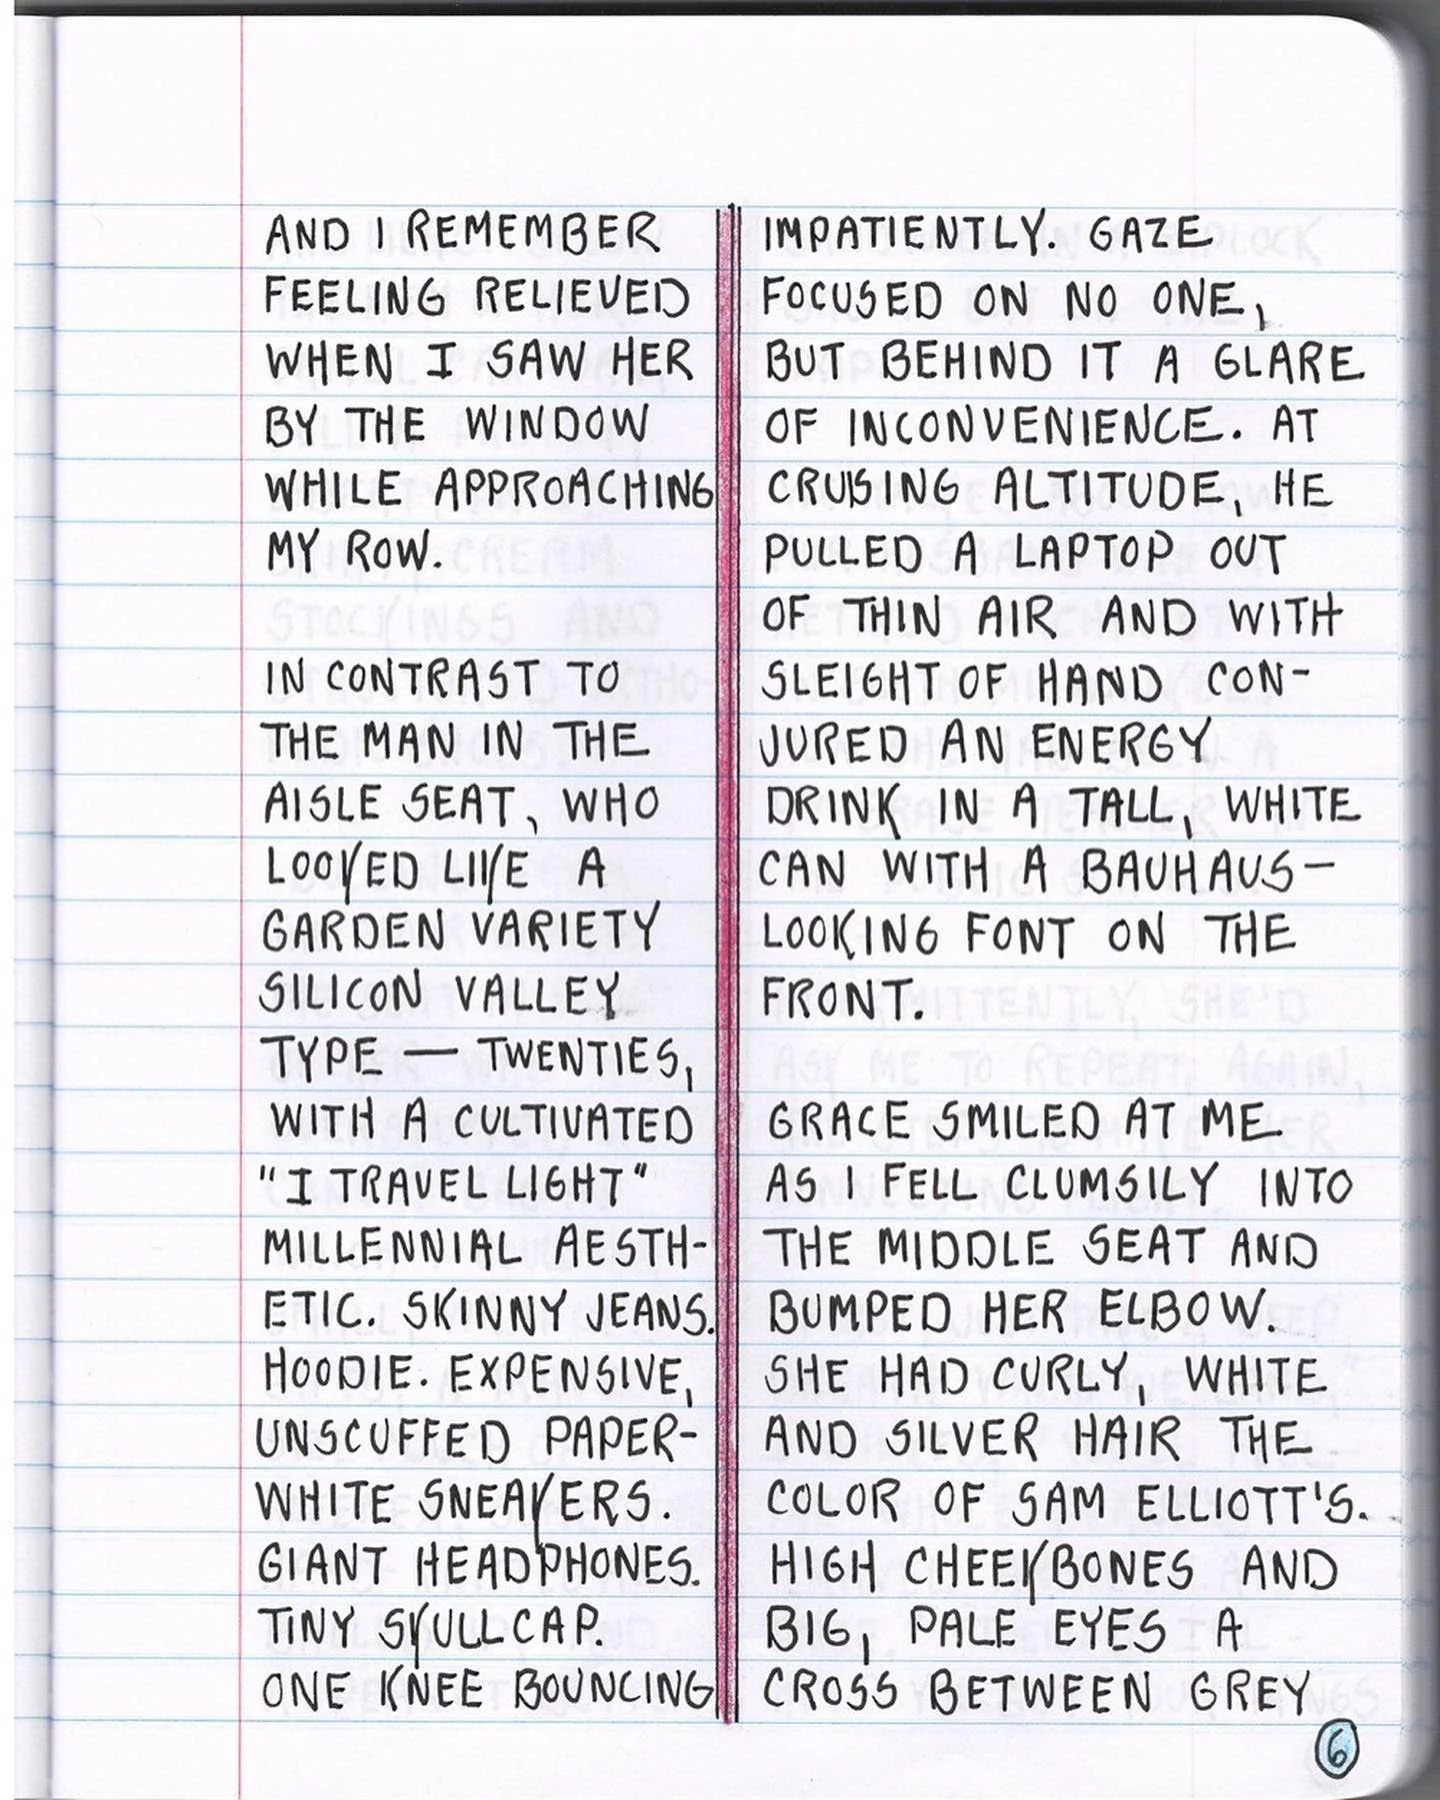 AND I REMEMBER
FEELING RELIEVED
WHEN I SAW HER
BY THE WINDOW
WHILE APPROACHING
MY ROW.
IN CONTRAST TO
THE MAN IN THE
AISLE SEAT, WHO
LOOKED LIKE A
GARDEN VARIETY
SILICON VALLEY
TYPE — TWENTIES,
WITH A CULTIVATED
"I TRAVEL LIGHT"
MILLENNIAL AESTH-
ETIC. SKINNY JEANS.
HOODIE. EXPENSIVE,
UNSCUFFED PAPER-
WHITE SNEAKERS.
GIANT HEADPHONES.
TINY SKULLCAP.
ONE KNEE BOUNCING
IMPATIENTLY. GAZE
FOCUSED ON NO ONE,
BUT BEHIND IT A GLARE
OF INCONVENIENCE. AT
CRUISING ALTITUDE, HE
PULLED A LAPTOP OUT
OF THIN AIR AND WITH
SLEIGHT OF HAND CON-
JURED AN ENERGY
DRINK IN A TALL, WHITE
CAN WITH A BAUHAUS-
LOOKING FONT ON THE
FRONT.
GRACE SMILED AT ME
AS I FELL CLUMSILY INTO
THE MIDDLE SEAT AND
BUMPED HER ELBOW.
SHE HAD CURLY, WHITE
AND SILVER HAIR THE
COLOR OF SAM ELLIOTT'S.
HIGH CHEEKBONES AND
BIG, PALE EYES A
CROSS BETWEEN GREY
6